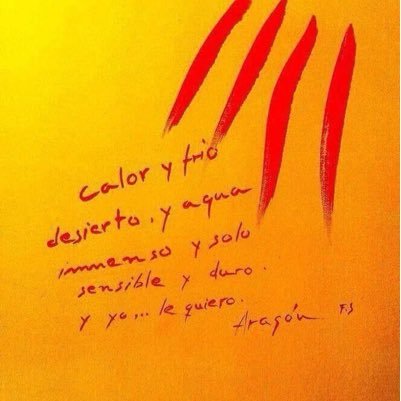 calor y frio
desierto, y agua
inmenso y solo
sensible y duro.
y yo... le quiero.
Aragón FS